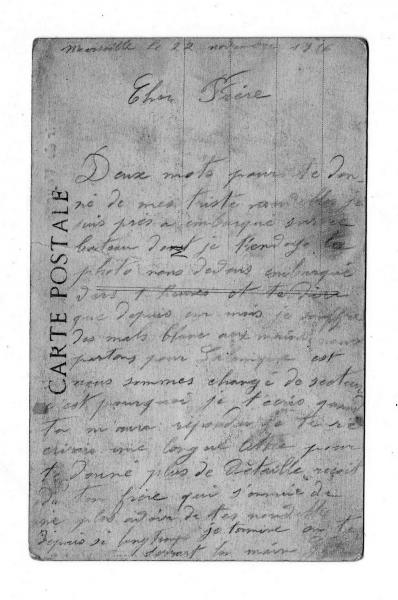 Marseille le 22 novembre 1916
Cher Frère
Deux mots pour te don
né de mes triste nouvelles je
suis près a embarqué sur ce
bateau dont je t'envoye la
photo nous devons embarqué
vers 1 heures et te dire
que depuis un mois je souffre
des mals blanc aux mains nous
partons pour Salonique est
nous sommes changé de secteur
c'est pourquoi je t'ecris quand
tu m'aura répondu je te ré
crirais une longue lettre pour
te donné plus de Détaille reçoit
de ton frère qui s'ennuie de
ne plus avoir de tes nouvelles
depuis si longtemps je termine en te
serrant la main
CARTE POSTALE